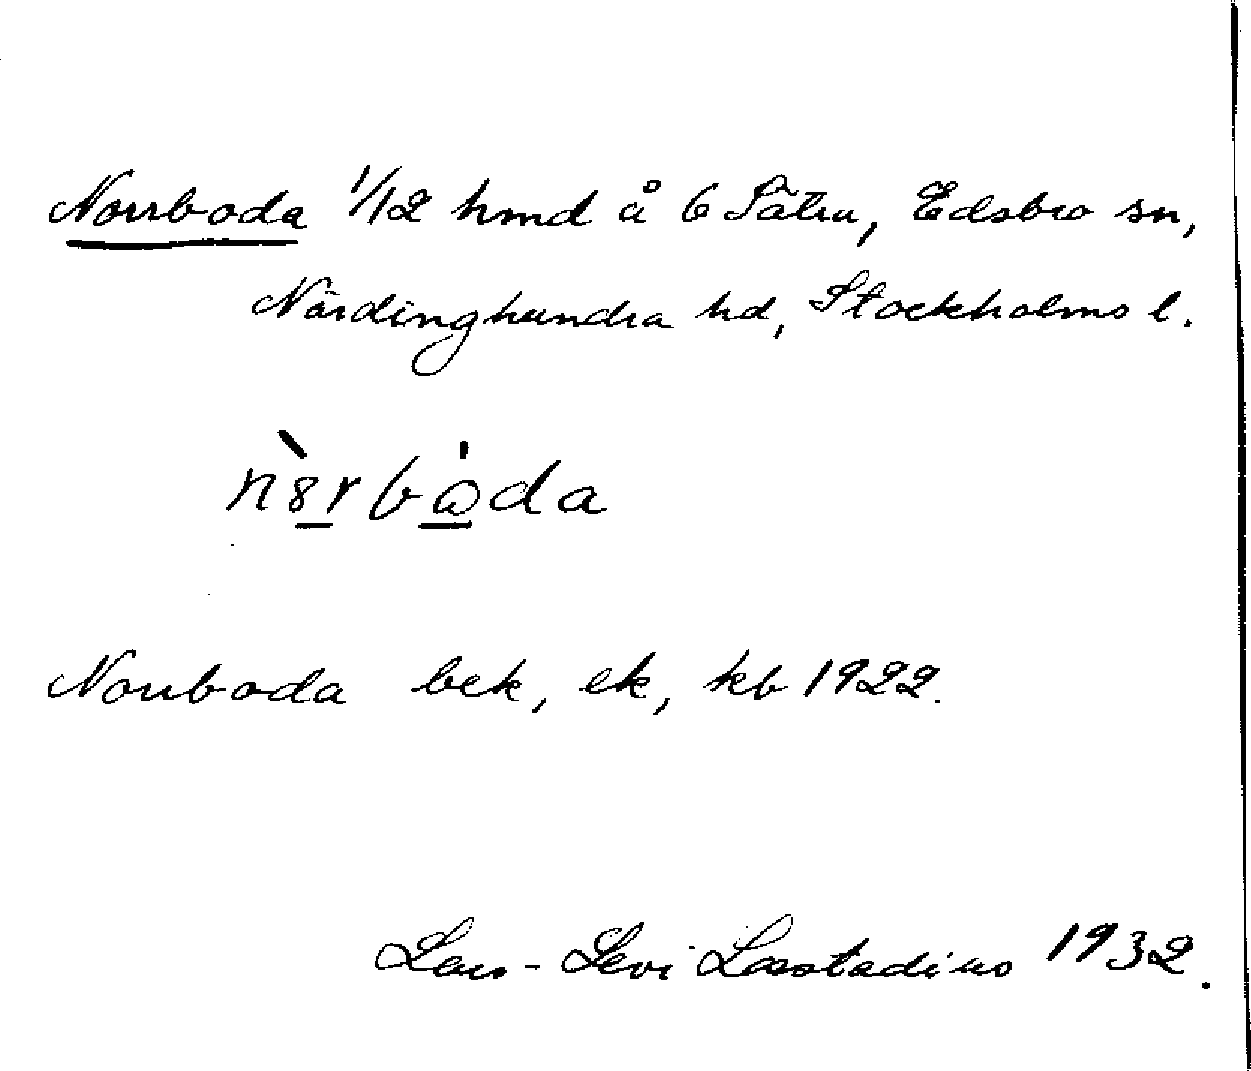 Norrboda 1/12 hmd å 6 Sätra, Edsbro sn,
Närdinghundra hd, Stockholms l.
n8̀rbω̇da
Norrboda bek, ek, kb 1922.
Lars-Levi Læstadius 1932.